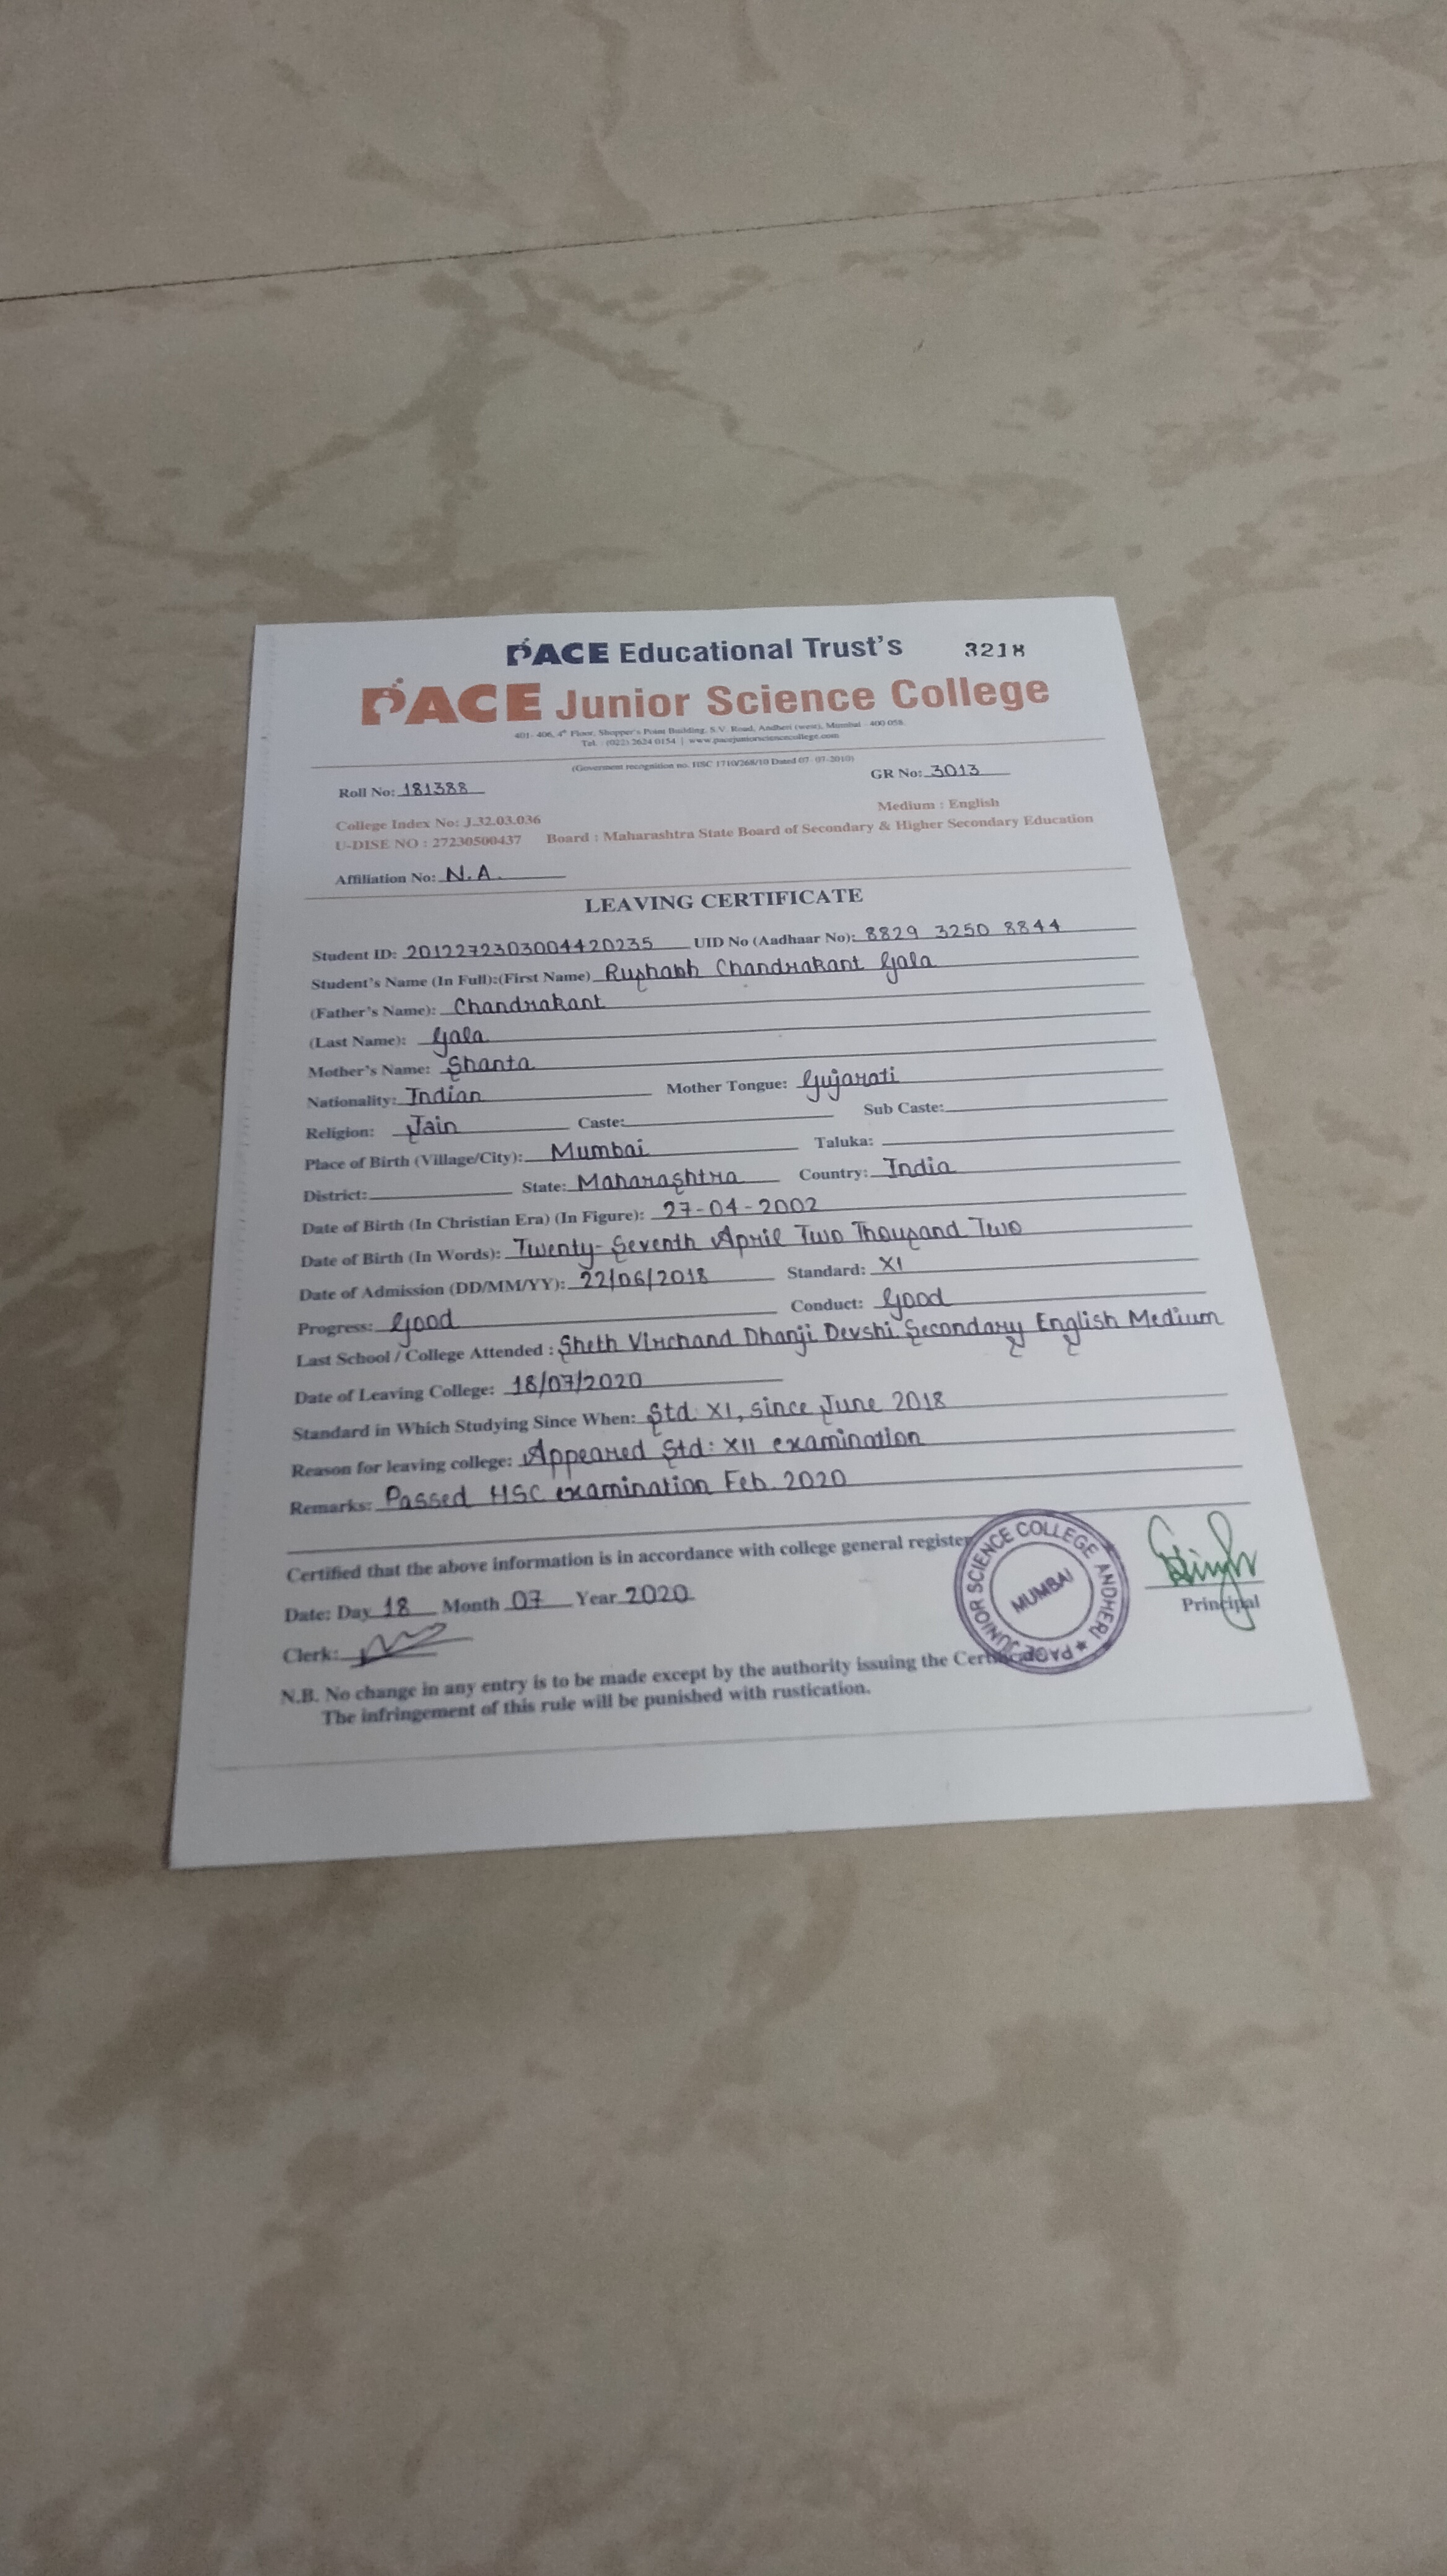 PACE Educational Trust's 3218
PACE Junior Science College
401- 406, 4th Floor, Shopper's Point Building, S.V. Road, Andheri (west), Mumbai - 400 058.
Tel. : (022) 2624 0154 | www.pacejuniorsciencecollege.com
(Goverment recognition no. HSC 1710/268/10 Dated 07-07-2010)
Roll No: 181388 GR No: 3013
College Index No: J.32.03.036 Medium : English
U-DISE NO : 27230500437 Board : Maharashtra State Board of Secondary & Higher Secondary Education
Affiliation No: N.A.
LEAVING CERTIFICATE
Student ID: 2012272303004420235 UID No (Aadhaar No): 8829 3250 8844
Student's Name (In Full):(First Name) Rushabh Chandrakant Gala
(Father's Name): Chandrakant
(Last Name): Gala
Mother's Name: Shanta
Nationality: Indian Mother Tongue: Gujarati
Religion: Jain Caste: Sub Caste:
Place of Birth (Village/City): Mumbai Taluka:
District: State: Maharashtra Country: India
Date of Birth (In Christian Era) (In Figure): 27-04-2002
Date of Birth (In Words): Twenty-Seventh April Two Thousand Two
Date of Admission (DD/MM/YY): 22/06/2018 Standard: XI
Progress: Good Conduct: Good
Last School / College Attended : Sheth Virchand Dhanji Devshi Secondary English Medium
Date of Leaving College: 18/07/2020
Standard in Which Studying Since When: Std: XI, since June 2018
Reason for leaving college: Appeared Std: XII examination
Remarks: Passed HSC examination Feb. 2020
Certified that the above information is in accordance with college general register
Date: Day 18 Month 07 Year 2020
Clerk:
Principal
PACE JUNIOR SCIENCE COLLEGE ANDHERI ★
MUMBAI
N.B. No change in any entry is to be made except by the authority issuing the Certificate.
The infringement of this rule will be punished with rustication.